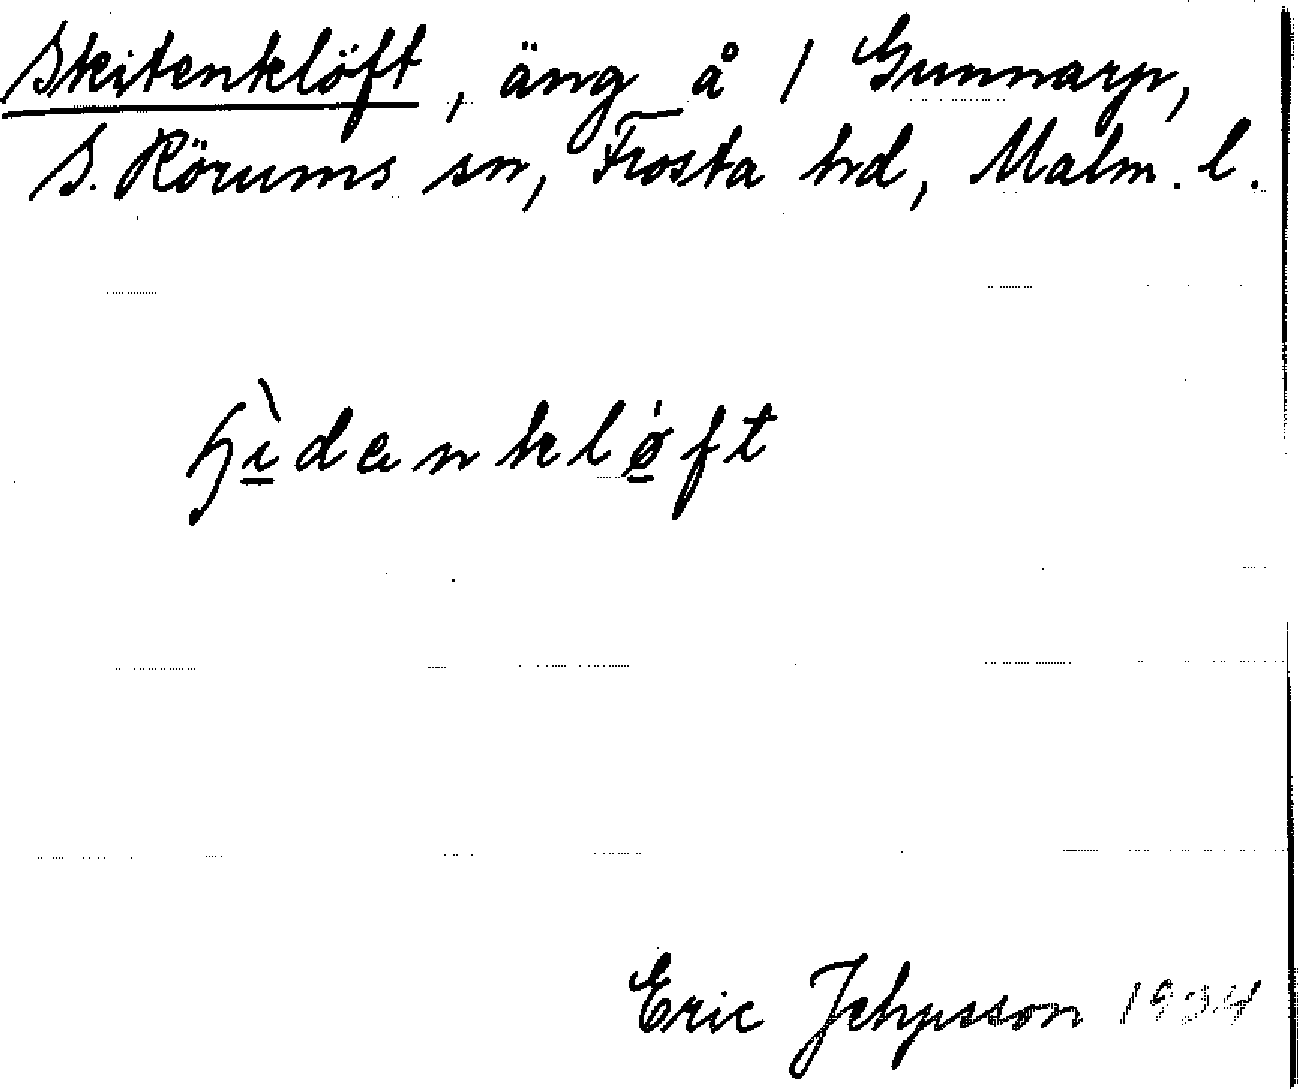 Skitenklöft, äng å 1 Gunnarp,
S. Rörums sn, Frosta hd, Malm. l.
ʃì̱danklǿ̱ft
Eric Jehpsson 1934